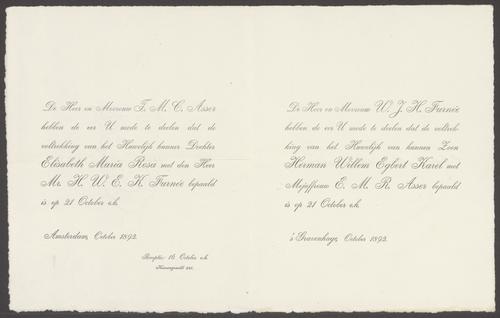 De Heer en Mevrouw T. M. C. Asser
hebben de eer U mede te deelen dat de
voltrekking van het Huwelijk hunner Dochter
Elisabeth Maria Rosa met den Heer
Mr. H. W. E. K. Furnée bepaald
is op 21 October e.k.
Amsterdam, October 1892.
Receptie 16 October e.k.
De Heer en Mevrouw W. J. H. Furnée
hebben de eer U mede te deelen dat de voltrek-
king van het Huwelijk van hunnen Zoon
Herman Willem Egbert Karel met
Mejuffrouw E. M. R. Asser bepaald
is op 21 October e.k.
's Gravenhage, October 1892.